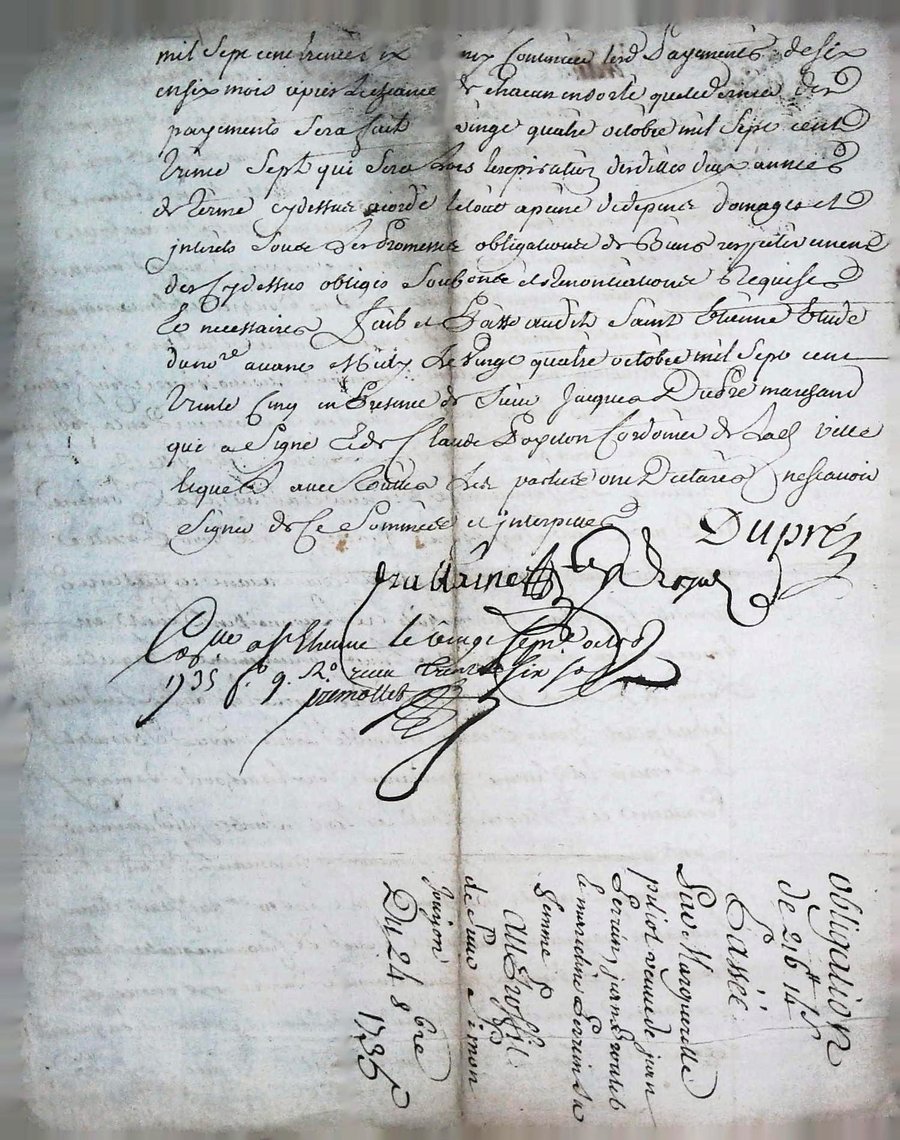 mil Sept cent trente six continuer lesd payements de six
en six mois apres de chacun en sorte que le dernier des
payements Sera fait vingt quatre octobre mil Sept cent
trente Sept qui Sera lors lexpiration desdittes deux années
de terme cy dessus acordé letout a peine de depens domages et
interets Sous Les Promesses obligations de Biens respectivement
des Cy dessus obligés Soubmis et Renonciations Requises
Et necessaires fait et Passé audit Saint Etienne Etude
du no.re avant Midy Le vingt quatre octobre mil Sept cent
trente Cinq en Presence de Sieur Jacques Dupré marchand
qui a Signé Et de Claude Cordonier de lad ville
lequel avec toutes Les parties ont Declarés ne scavoir
Signer de Ce Sommés et interpellés
Dupré
Con.lle a St Etienne le vingt Sept octob
1735 f.o 9. R.o recu trente six s
obligation
de 216# 14 s
Passée
Par Marguerite
veuve de jean
Perrin, jean
le Perrin Sa
femme
au Proffit
de Sieur Simon
Jourjon
Du 24 8bre
1735